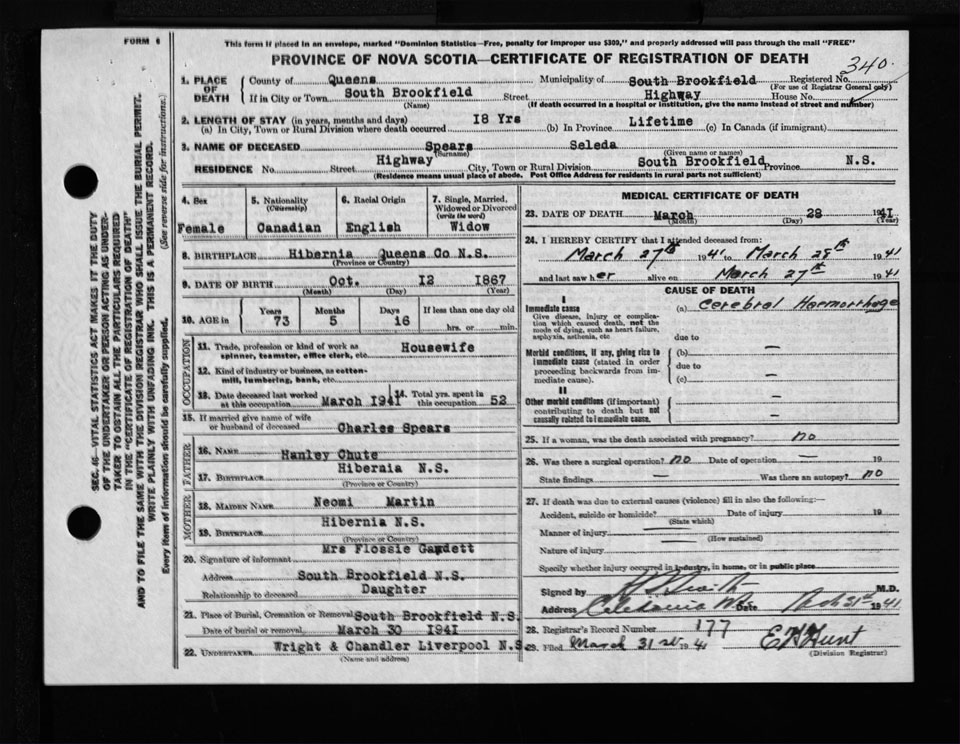 FORM 6
This form if placed in an envelope, marked "Dominion Statistics—Free, penalty for improper use $300," and properly addressed will pass through the mail "FREE"
PROVINCE OF NOVA SCOTIA—CERTIFICATE OF REGISTRATION OF DEATH
340.
1. PLACE OF DEATH
County of Queens Municipality of South Brookfield Registered No.
(For use of Registrar General only)
If in City or Town South Brookfield Street Highway House No.
(Name) (If death occurred in a hospital or institution, give the name instead of street and number)
2. LENGTH OF STAY (in years, months and days)
(a) In City, Town or Rural Division where death occurred 18 Yrs (b) In Province Lifetime (c) In Canada (if immigrant)
3. NAME OF DECEASED Spears Seleda
(Surname) (Given name or names)
RESIDENCE No. Highway Street City, Town or Rural Division South Brookfield Province N.S.
(Residence means usual place of abode. Post Office Address for residents in rural parts not sufficient)
4. Sex Female
5. Nationality (Citizenship) Canadian
6. Racial Origin English
7. Single, Married, Widowed or Divorced (write the word) Widow
8. BIRTHPLACE Hibernia Queens Co N.S.
(Province or Country)
9. DATE OF BIRTH Oct. 12 1867
(Month) (Day) (Year)
10. AGE in Years 73 Months 5 Days 16 If less than one day old
hrs. or min.
OCCUPATION
11. Trade, profession or kind of work as spinner, teamster, office clerk, etc. Housewife
12. Kind of industry or business, as cotton-mill, lumbering, bank, etc.
13. Date deceased last worked at this occupation March 1941
14. Total yrs. spent in this occupation 52
15. If married give name of wife or husband of deceased Charles Spears
FATHER
16. NAME Hanley Chute
17. BIRTHPLACE Hibernaia N.S.
(Province or Country)
MOTHER
18. MAIDEN NAME Neomi Martin
19. BIRTHPLACE Hibernia N.S.
(Province or Country)
20. Signature of informant Mrs Flossie
Address South Brookfield N.S.
Relationship to deceased Daughter
21. Place of Burial, Cremation or Removal South Brookfield N.S.
Date of burial or removal March 30 1941
22. UNDERTAKER Wright & Chandler Liverpool N.S.
(Name and address)
MEDICAL CERTIFICATE OF DEATH
23. DATE OF DEATH March 28 1941
(Month) (Day) (Year)
24. I HEREBY CERTIFY that I attended deceased from:
March 27th 1941 to March 28th 1941
and last saw her alive on March 27th 1941
CAUSE OF DEATH
I
Immediate cause (a) Cerebral Haemorrhage
Give disease, injury or complication which caused death, not the mode of dying, such as heart failure, asphyxia, asthenia, etc.
due to
Morbid conditions, if any, giving rise to immediate cause (stated in order proceeding backwards from immediate cause).
(b) —
due to
(c) —
II
Other morbid conditions (if important) contributing to death but not causally related to immediate cause.
—
—
25. If a woman, was the death associated with pregnancy? no
26. Was there a surgical operation? no Date of operation —
State findings — Was there an autopsy? no
27. If death was due to external causes (violence) fill in also the following:—
Accident, suicide or homicide? Date of injury 19
(State which)
Manner of injury
(How sustained)
Nature of injury
Specify whether injury occurred in industry, in home, or in public place
Signed by M.D.
Address Caledonia Date 31st 1941
28. Registrar's Record Number 177
29. Filed March 31st 1941 E H Hunt
(Division Registrar)
SEC. 16—VITAL STATISTICS ACT MAKES IT THE DUTY
OF THE UNDERTAKER OR PERSON ACTING AS UNDER-
TAKER TO OBTAIN ALL THE PARTICULARS REQUIRED
IN THE "CERTIFICATE OF REGISTRATION OF DEATH"
AND TO FILE THE SAME WITH THE DIVISION REGISTRAR WHO SHALL ISSUE THE BURIAL PERMIT.
WRITE PLAINLY WITH UNFADING INK. THIS IS A PERMANENT RECORD.
Every item of information should be carefully supplied. (See reverse side for instructions.)